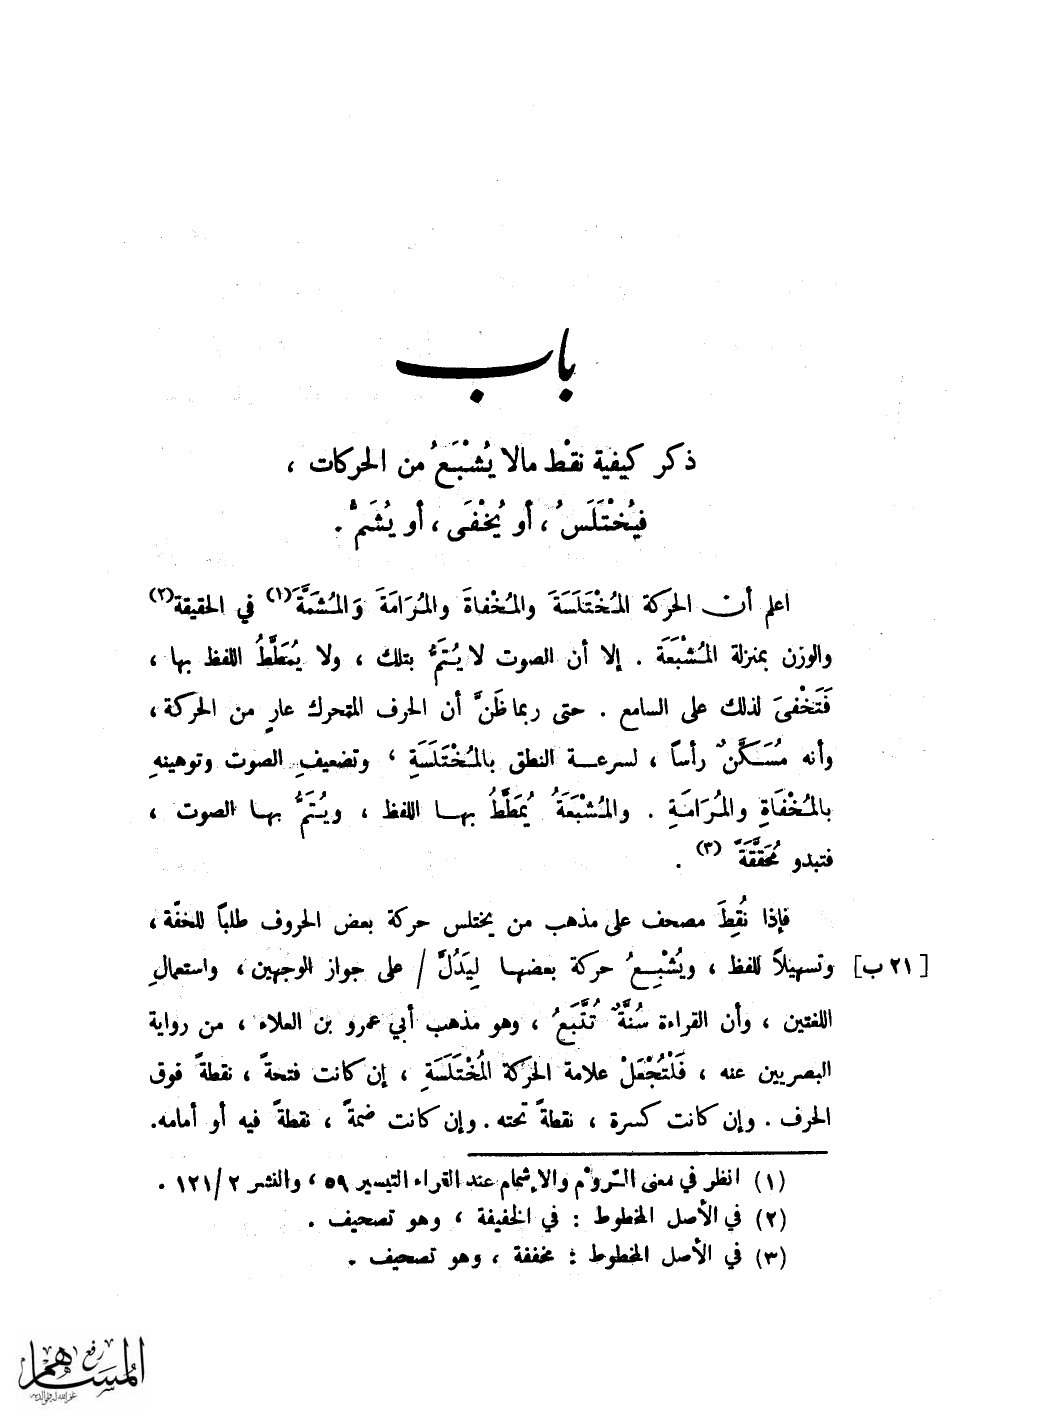 باب
ذكر كيفية نقْط مالا يُشْبَعُ من الحركات ،
فيُخْتَلَسُ ، أو يُخْفَى ، أو يُشَمُّ .
اعلم أن الحركة المُخْتَلَسَةَ والمُخْفاةَ والمُرَامَةَ وَالمُشَمَّةَ(١) في الحقيقة(٢)
والوزن بمنزلة المُشْبَعَة . إلا أن الصوت لا يُتَمُّ بتلك ، ولا يُمَطَّطُ اللفظ بها ،
فَتَخْفىَ لذلك على السامع . حتى ربما ظَنَّ أن الحرف المتحرك عارٍ من الحركة ،
وأنه مُسَكَّنٌ رأساً ، لسرعة النطق بالمُخْتَلَسَةِ ، وتضعيفِ الصوت وتوهينهِ
بالمُخْفَاةِ والمُرَامَةِ . والمُشْبَعَةُ يُمَطَّطُ بها اللفظ ، ويُتَمُّ بها الصوت ،
فتبدو مُحَقَّقَةً (٣) .
فإذا نُقِطَ مصحف على مذهب من يختلس حركة بعض الحروف طلباً للخفّة ،
[ ٢١ ب ] وتسهيلاً للفظ ، ويُشْبِعُ حركة بعضها لِيَدُلَّ / على جواز الوجهين ، واستعمالِ
اللغتين ، وأن القراءة سُنَّةٌ تُتَّبَعُ ، وهو مذهب أبي عمرو بن العلاء ، من رواية
البصريين عنه ، فَلْتُجْعَلْ علامة الحركة المُخْتَلَسَةِ ، إن كانت فتحةً ، نقطةً فوق
الحرف . وإن كانت كسرة ، نقطةً تحته . وإن كانت ضمةً ، نقطةً فيه أو أمامه.
(١) انظر في معنى الرَّوْم والإشمام عند القراء التيسير ٥٩ ، والنشر ٢ /١٢١ .
(٢) في الأصل المخطوط : في الخفيفة ، وهو تصحيف .
(٣) في الأصل المخطوط : مخففة ، وهو تصحيف .
رفع
المساهم